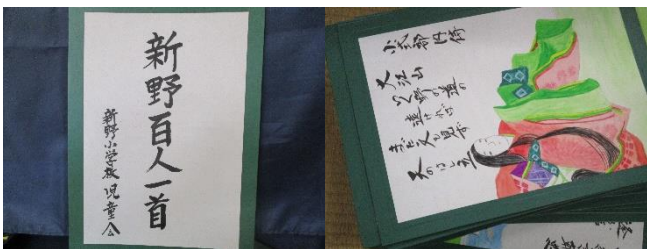 新野百人一首
新野小学校 児童会
小式部内侍
大江山
いく野の道の
遠ければ
まだ文も見ず
天のはし立